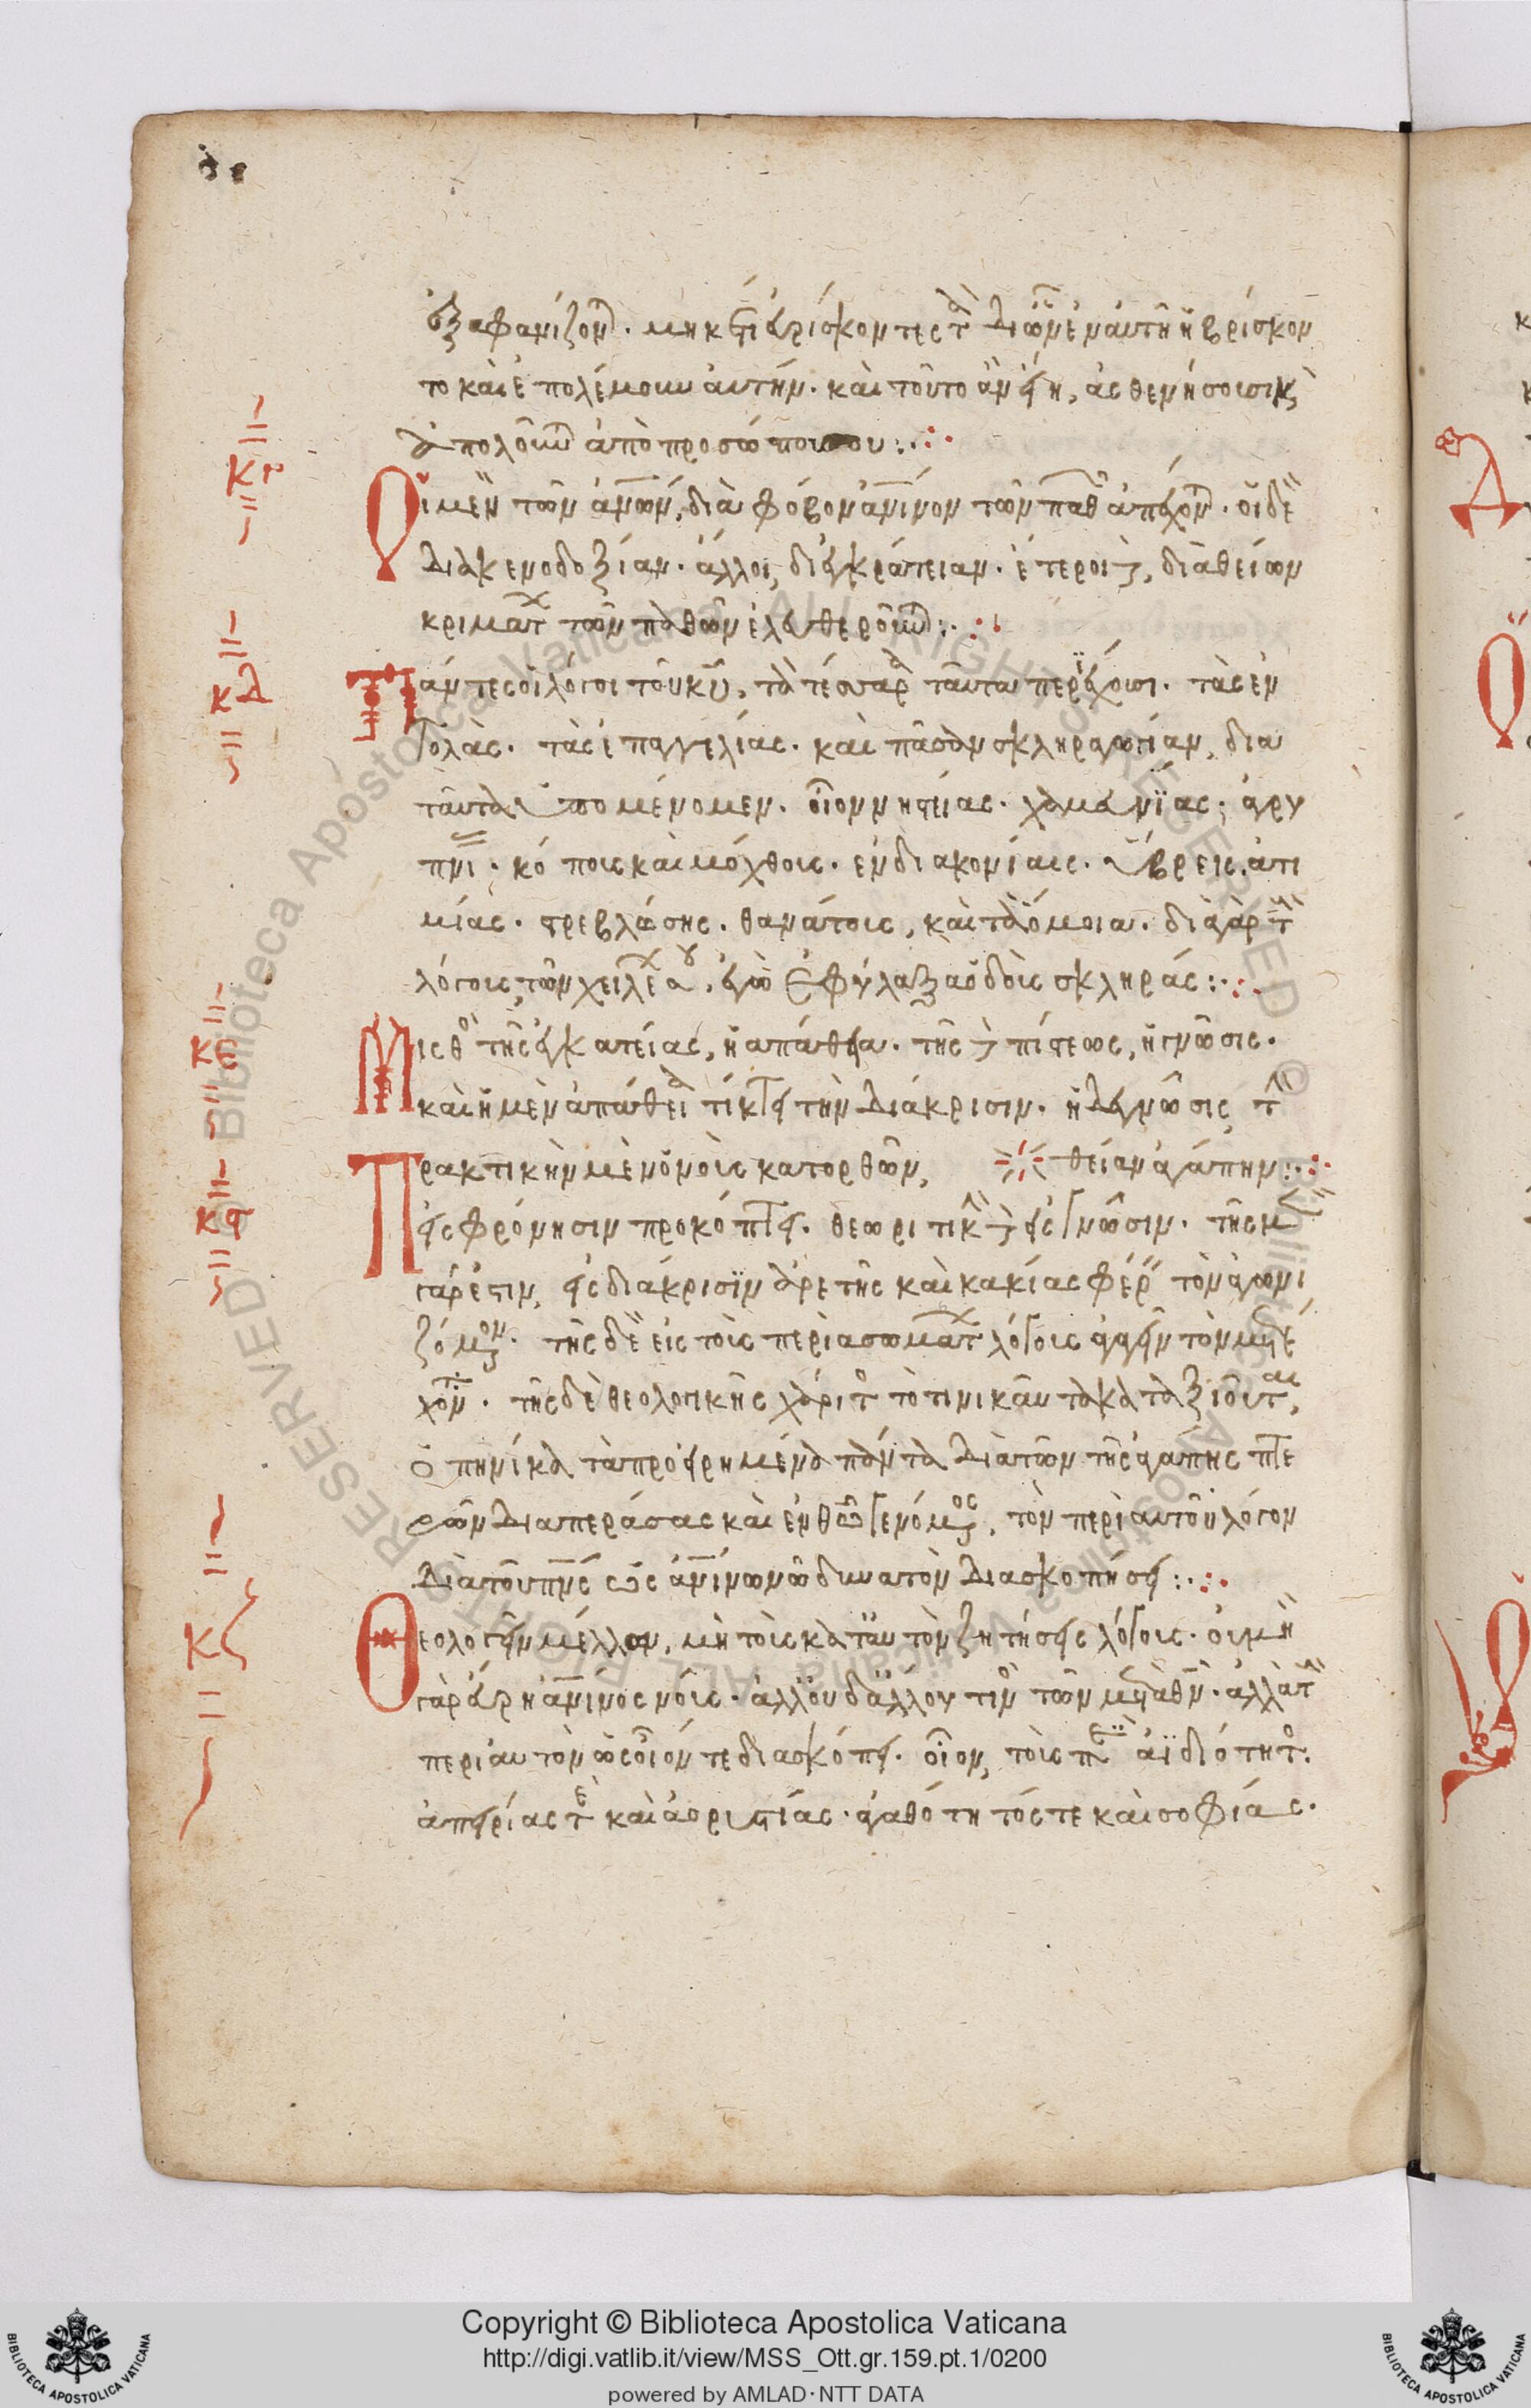 ἐξαφανίζον. μηκέτι εὑρίσκοντες τὰ δι' ὧν ἐν αὐτῆ ηὐρίσκον
το καὶ ἐπολέμουν αὐτήν. καὶ τοῦτο ἂν εἴη, ἀσθενήσουσιν καὶ
ἀπολοῦν ἀπὸ προσώπου σου :.
κγ
Οἱ μὲν τῶν ἀνων, διὰ φόβον ἀνινον τῶν παθ ἀπέχον. οἱ δὲ
διὰ κενοδοξίαν. ἄλλοι, δι' ἐγκράτειαν. ἕτεροι δὲ, διὰ θείων
κριματ τῶν παθῶν ἐλευθεροῦν :.
κδ
Πάντες οἱ λόγοι τοῦ κυ, τὰ τέσσαρα ταῦτα περιέχουσι. τὰς ἐν
τολὰς. τὰς ἐπαγγελίας. καὶ πᾶσαν σκληραγωγίαν, δια
ταῦτα ὑπομένομεν. οἷον νηστείας. χαμευνίας. ἀγρυ
πνι. κόποις καὶ μόχθοις. ἐν διακονίαις. ὕβρεις. ἀτι
μίας. στρεβλώσης. θανάτοις, καὶ τὰ ὅμοια. διὰ γὰρ τ
λόγοις τῶν χειλέων σου, ἐγὼ ἐφύλαξα ὁδοὺς σκληράς :.
κε
Μισθὸ τῆς ἐγκρατείας, ἡ απάθεια. τῆς δὲ πίστεως, ἡ γνῶσις.
καὶ ἡ μὲν ἀπάθεια τίκτει τὴν διάκρισιν. ἡ δὲ γνῶσις, τ
θείαν ἀγάπην :.
κϛ
Πρακτικὴν μὲν ὁ νοῦς κατορθῶν,
εἰς φρόνησιν προκόπτει. θεωριτικὴν δὲ εἰς γνῶσιν. τῆς μ
γάρ ἐστιν, εἰς διάκρισϊν ἀρετῆς καὶ κακίας φέρ τὸν ἀγωνι
ζόμενον. τῆς δὲ εἰς τοὺς περὶ ασωματ λόγοις ἀγειν τὸν μετέ
χον. τῆς δὲ θεολογικῆς χάριτ τὸ τινικαῦτα καταξιοῦται,
ὁπηνίκα τὰ προειρημένα πάντα διὰ τῶν τῆς ἀγάπης πτε
ρῶν διαπεράσας καὶ ἐν θῶ γενόμενος, τὸν περὶ αὐτοῦ λόγον
διὰ τοῦ πνς ὡς ἀνινω νῶ δυνατὸν διασκοπήσει :.
κζ
Θεολογεῖν μέλλων, μὴ τοὺς κατ' αὐτὸν ζητήσεις λόγοις. οὐ μὴ
γὰρ εὕρη ἀνινος νοῦς. ἀλλ' οὐδ' ἄλλου τινὸ τῶν μετὰ θν. ἀλλὰ τ
περὶ αὐτὸν ὡς οἷόν τε διασκόπει. οἷον, τοὺς περὶ ἀϊδιότητ.
ἀπειρίας τε καὶ ἀοριστίας. ἀγαθότητός τε καὶ σοφίας.
Copyright © Biblioteca Apostolica Vaticana
http://digi.vatlib.it/view/MSS_Ott.gr.159.pt.1/0200
powered by AMLAD·NTT DATA